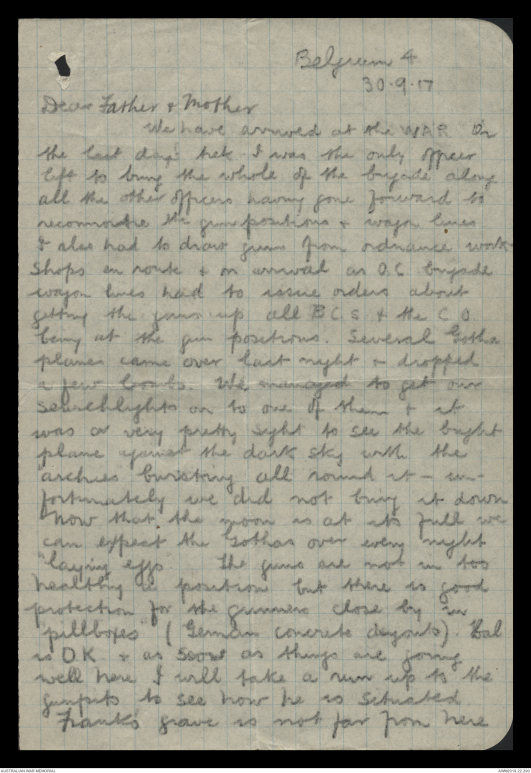 Belgium 4
30.9.17
Dear Father & Mother
We have arrived at the WAR On
the last days trek I was the only officer
left to bring the whole of the brigade along
all the other officers having gone forward to
reconnoitre the gun positions & wagon lines
I also had to draw guns from ordnance work-
shops en route & on arrival as O.C. brigade
wagon lines had to issue orders about
getting the guns up all B.C.s & the C.O.
being at the gun positions. Several Gotha
planes came over last night & dropped
a few bombs. We managed to get our
searchlights on to one of them & it
was a very pretty sight to see the bright
plane against the dark sky with the
"archies" bursting all round it - un-
fortunately we did not bring it down
Now that the moon is at its full we
can expect the Gothas over every night
"laying eggs". The guns are not in too
healthy a position but there is good
protection for the gunners close by in
"pillboxes" (German concrete dugouts). Hal
is O.K. & as soon as things are going
well here I will take a run up to the
gunpits to see how he is situated.
Frank's grave is not far from here
AUSTRALIAN WAR MEMORIAL